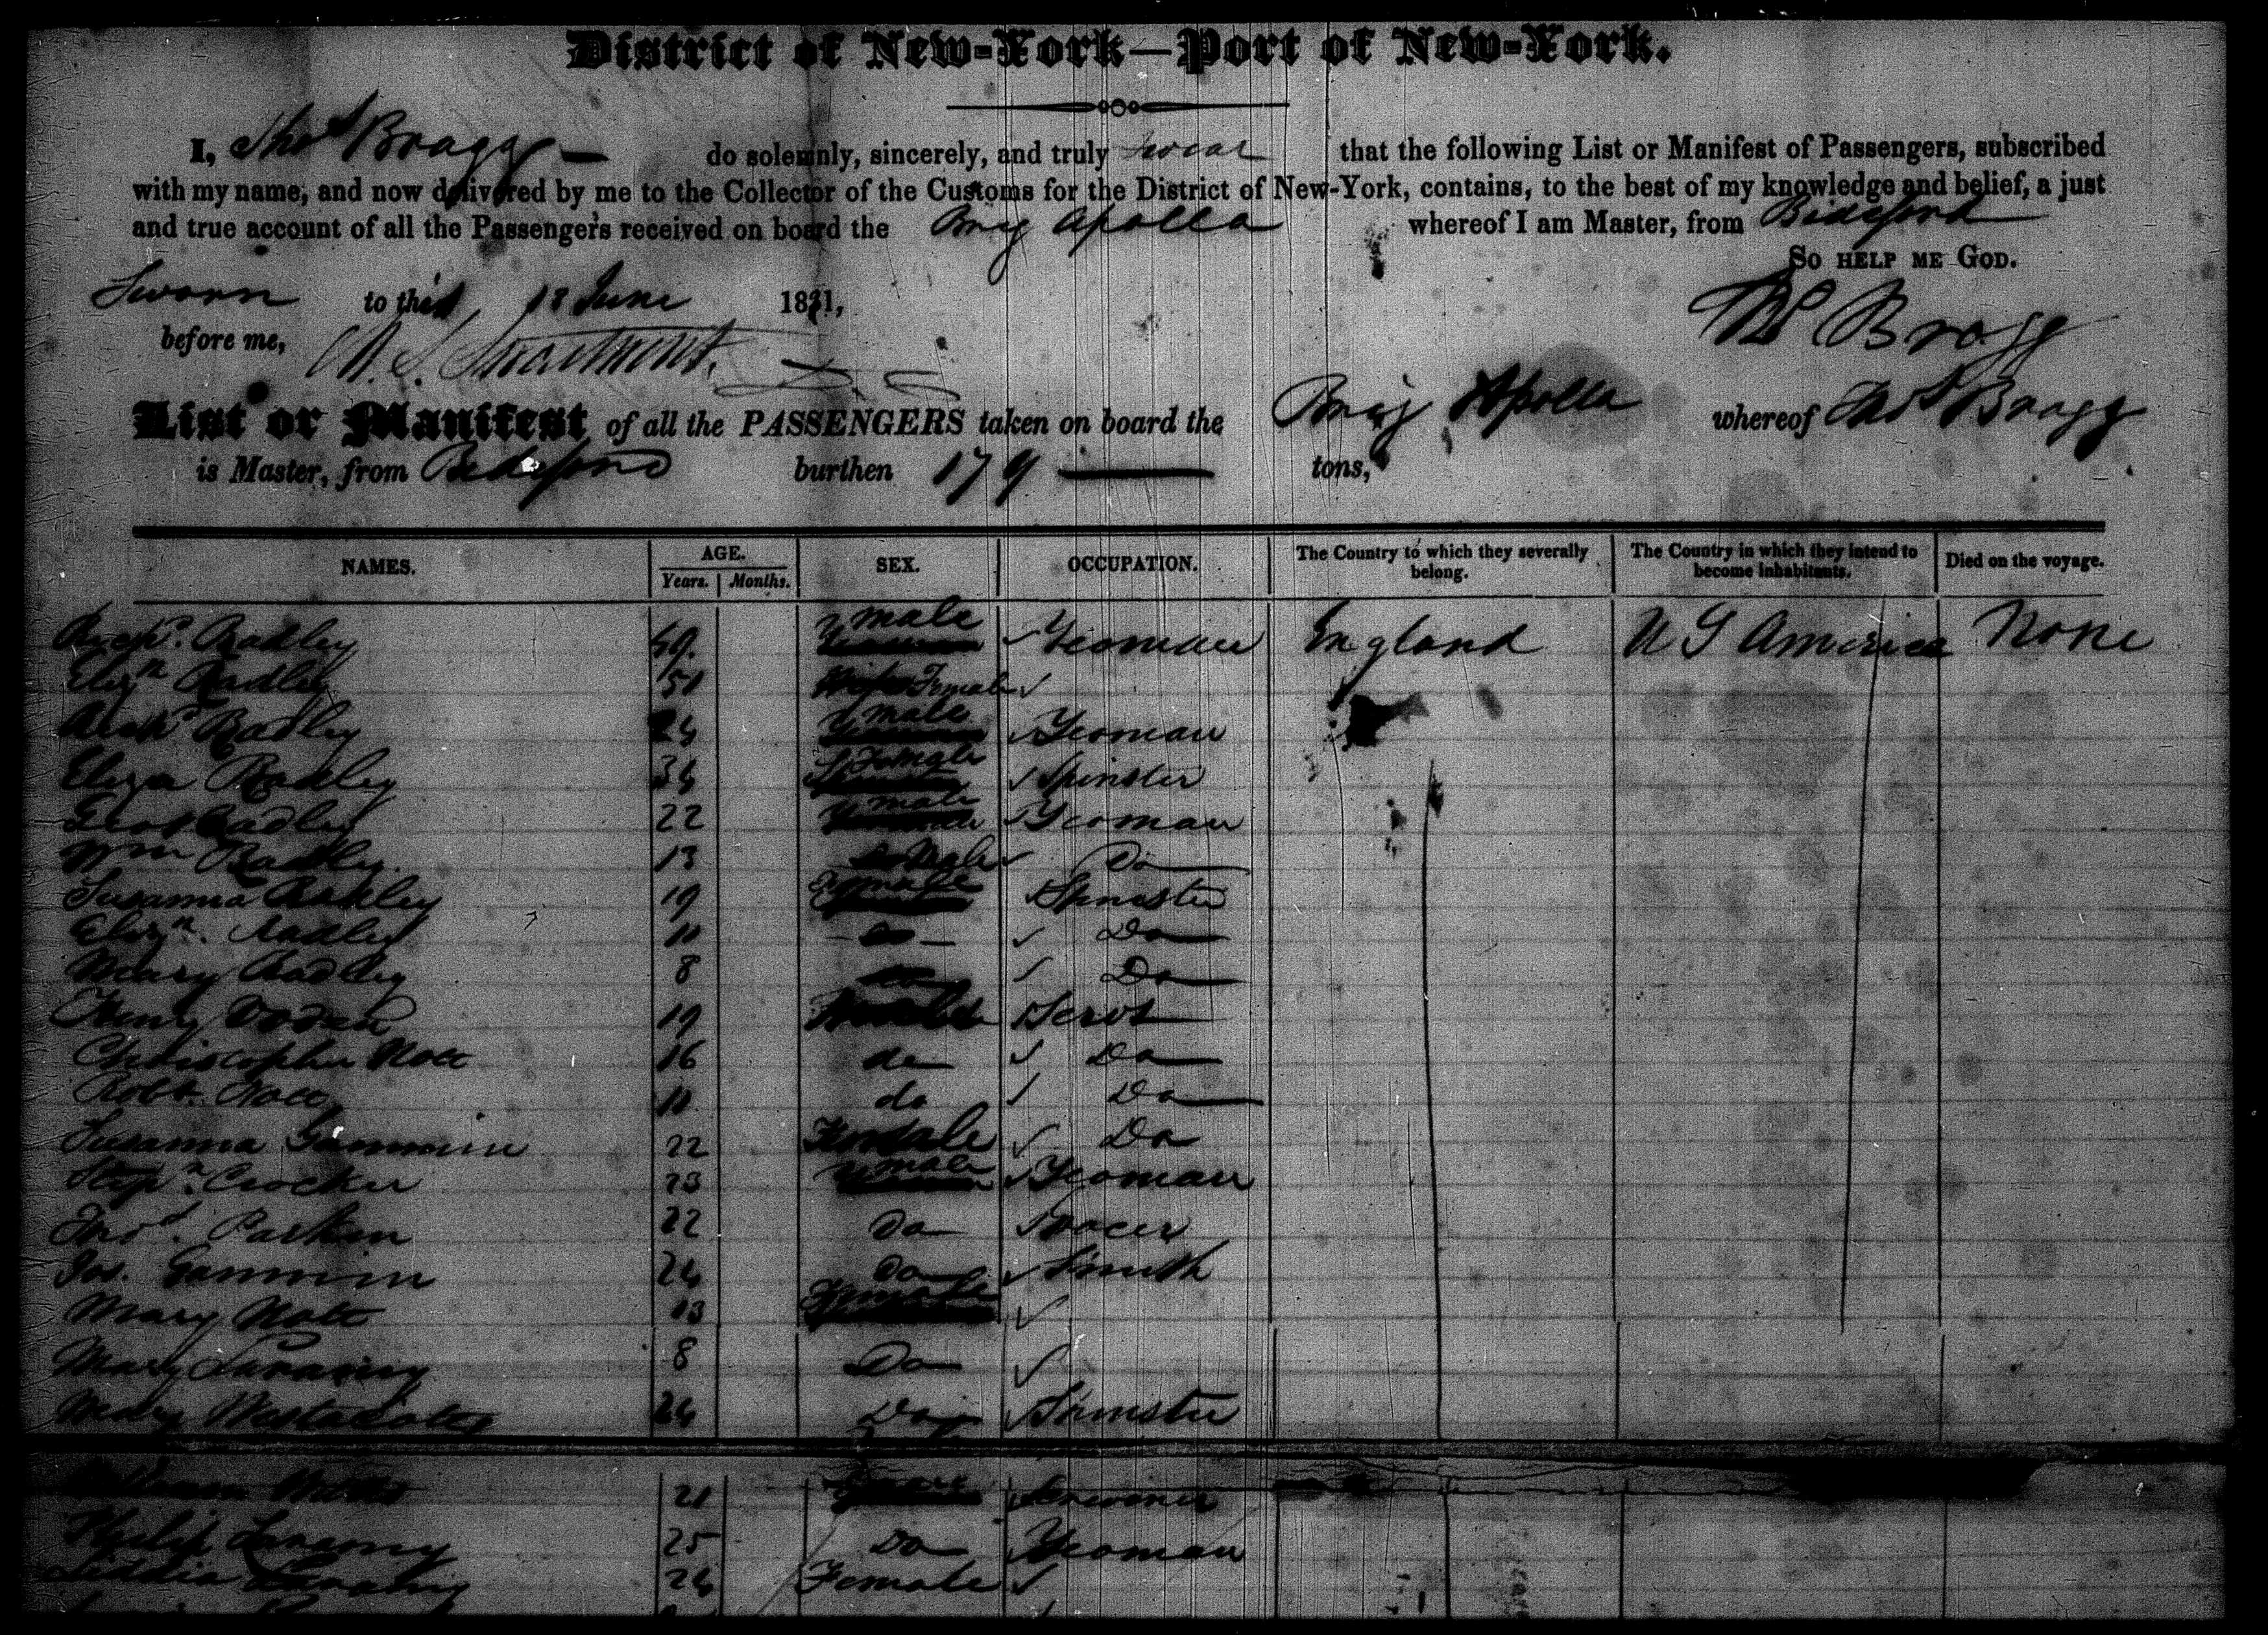 District of New-York—Port of New-York.
I, Thos Bragg do solemnly, sincerely, and truly swear that the following List or Manifest of Passengers, subscribed
with my name, and now delivered by me to the Collector of the Customs for the District of New-York, contains, to the best of my knowledge and belief, a just
and true account of all the Passengers received on board the Brig Apollo whereof I am Master, from Bideford
So help me God.
Sworn to this 18 June 1831,
before me,
Ths Bragg
List or Manifest of all the PASSENGERS taken on board the Brig Apollo whereof Thos Bragg
is Master, from Bideford burthen 179 tons,
NAMES. AGE. SEX. OCCUPATION. The Country to which they severally belong. The Country in which they intend to become inhabitants. Died on the voyage.
Years. Months.
Richd. Radley male Yeoman England U S America None
Elizh Radley 51 Female
Richd Radley 24 male Yeoman
Eliza Radley 34 Female Spinster
Radley 22 male Yeoman
Wm Radley 13 Male Do
Susanna Radley 19 Female Spinster
Elizh. Radley 11 do Do
Mary Radley 8 do Do
19 Servt
Christopher Nott 16 do Do
Robt. Nott 11 do Do
Susanna Gammin 22 Female Do
Stepn. Crocker 23 male Yeoman
Thos. Parkin 22 Do
Jas. Gammin 24 Do Smith
Mary Nott 13 Female
Mary 8 Do
Mary 24 Do Spinster
21
Philip 25 Do Yeoman
24 Female